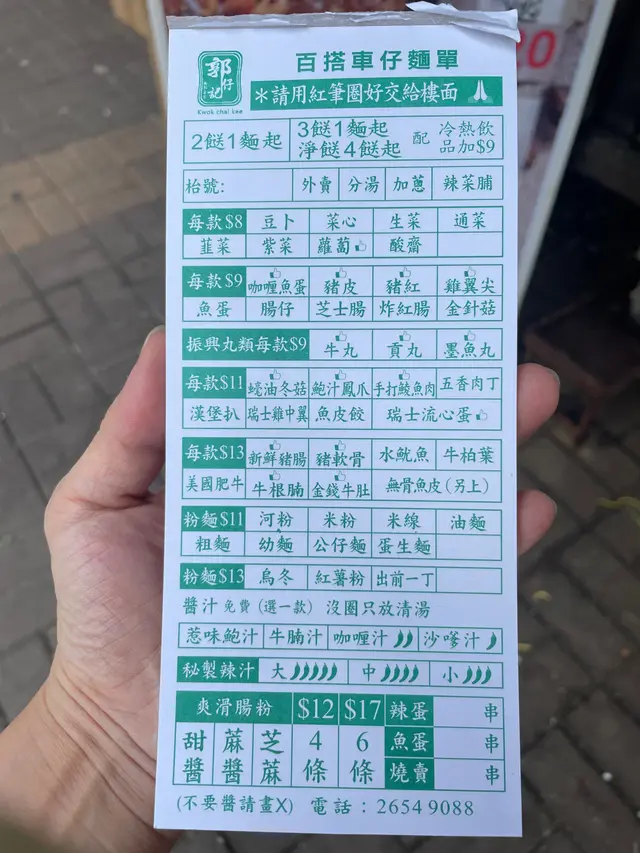 郭仔記
Kwok chai kee
百搭車仔麵單
*請用紅筆圈好交給樓面
2餸1麵起 3餸1麵起 淨餸4餸起 配 冷熱飲品加$9
枱號: 外賣 分湯 加蔥 辣菜脯
每款$8 豆卜 菜心 生菜 通菜
韮菜 紫菜 蘿蔔 酸齋
每款$9 咖喱魚蛋 豬皮 豬紅 雞翼尖
魚蛋 腸仔 芝士腸 炸紅腸 金針菇
振興丸類每款$9 牛丸 貢丸 墨魚丸
每款$11 蠔油冬菇 鮑汁鳳爪 手打鯪魚肉 五香肉丁
漢堡扒 瑞士雞中翼 魚皮餃 瑞士流心蛋
每款$13 新鮮豬腸 豬軟骨 水魷魚 牛柏葉
美國肥牛 牛根腩 金錢牛肚 無骨魚皮(另上)
粉麵$11 河粉 米粉 米線 油麵
粗麵 幼麵 公仔麵 蛋生麵
粉麵$13 烏冬 紅薯粉 出前一丁
醬汁 免費 (選一款) 沒圈只放清湯
惹味鮑汁 牛腩汁 咖喱汁 沙嗲汁
秘製辣汁 大 中 小
爽滑腸粉 $12 $17 辣蛋 串
甜醬 蔴醬 芝蔴 4條 6條 魚蛋 串
燒賣 串
(不要醬請畫X) 電話：2654 9088
20